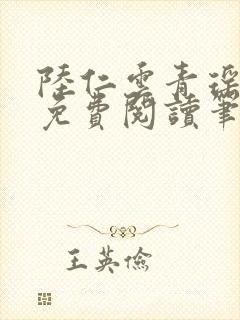 陸仁雲青瑤
免費閱讀筆
王英儉